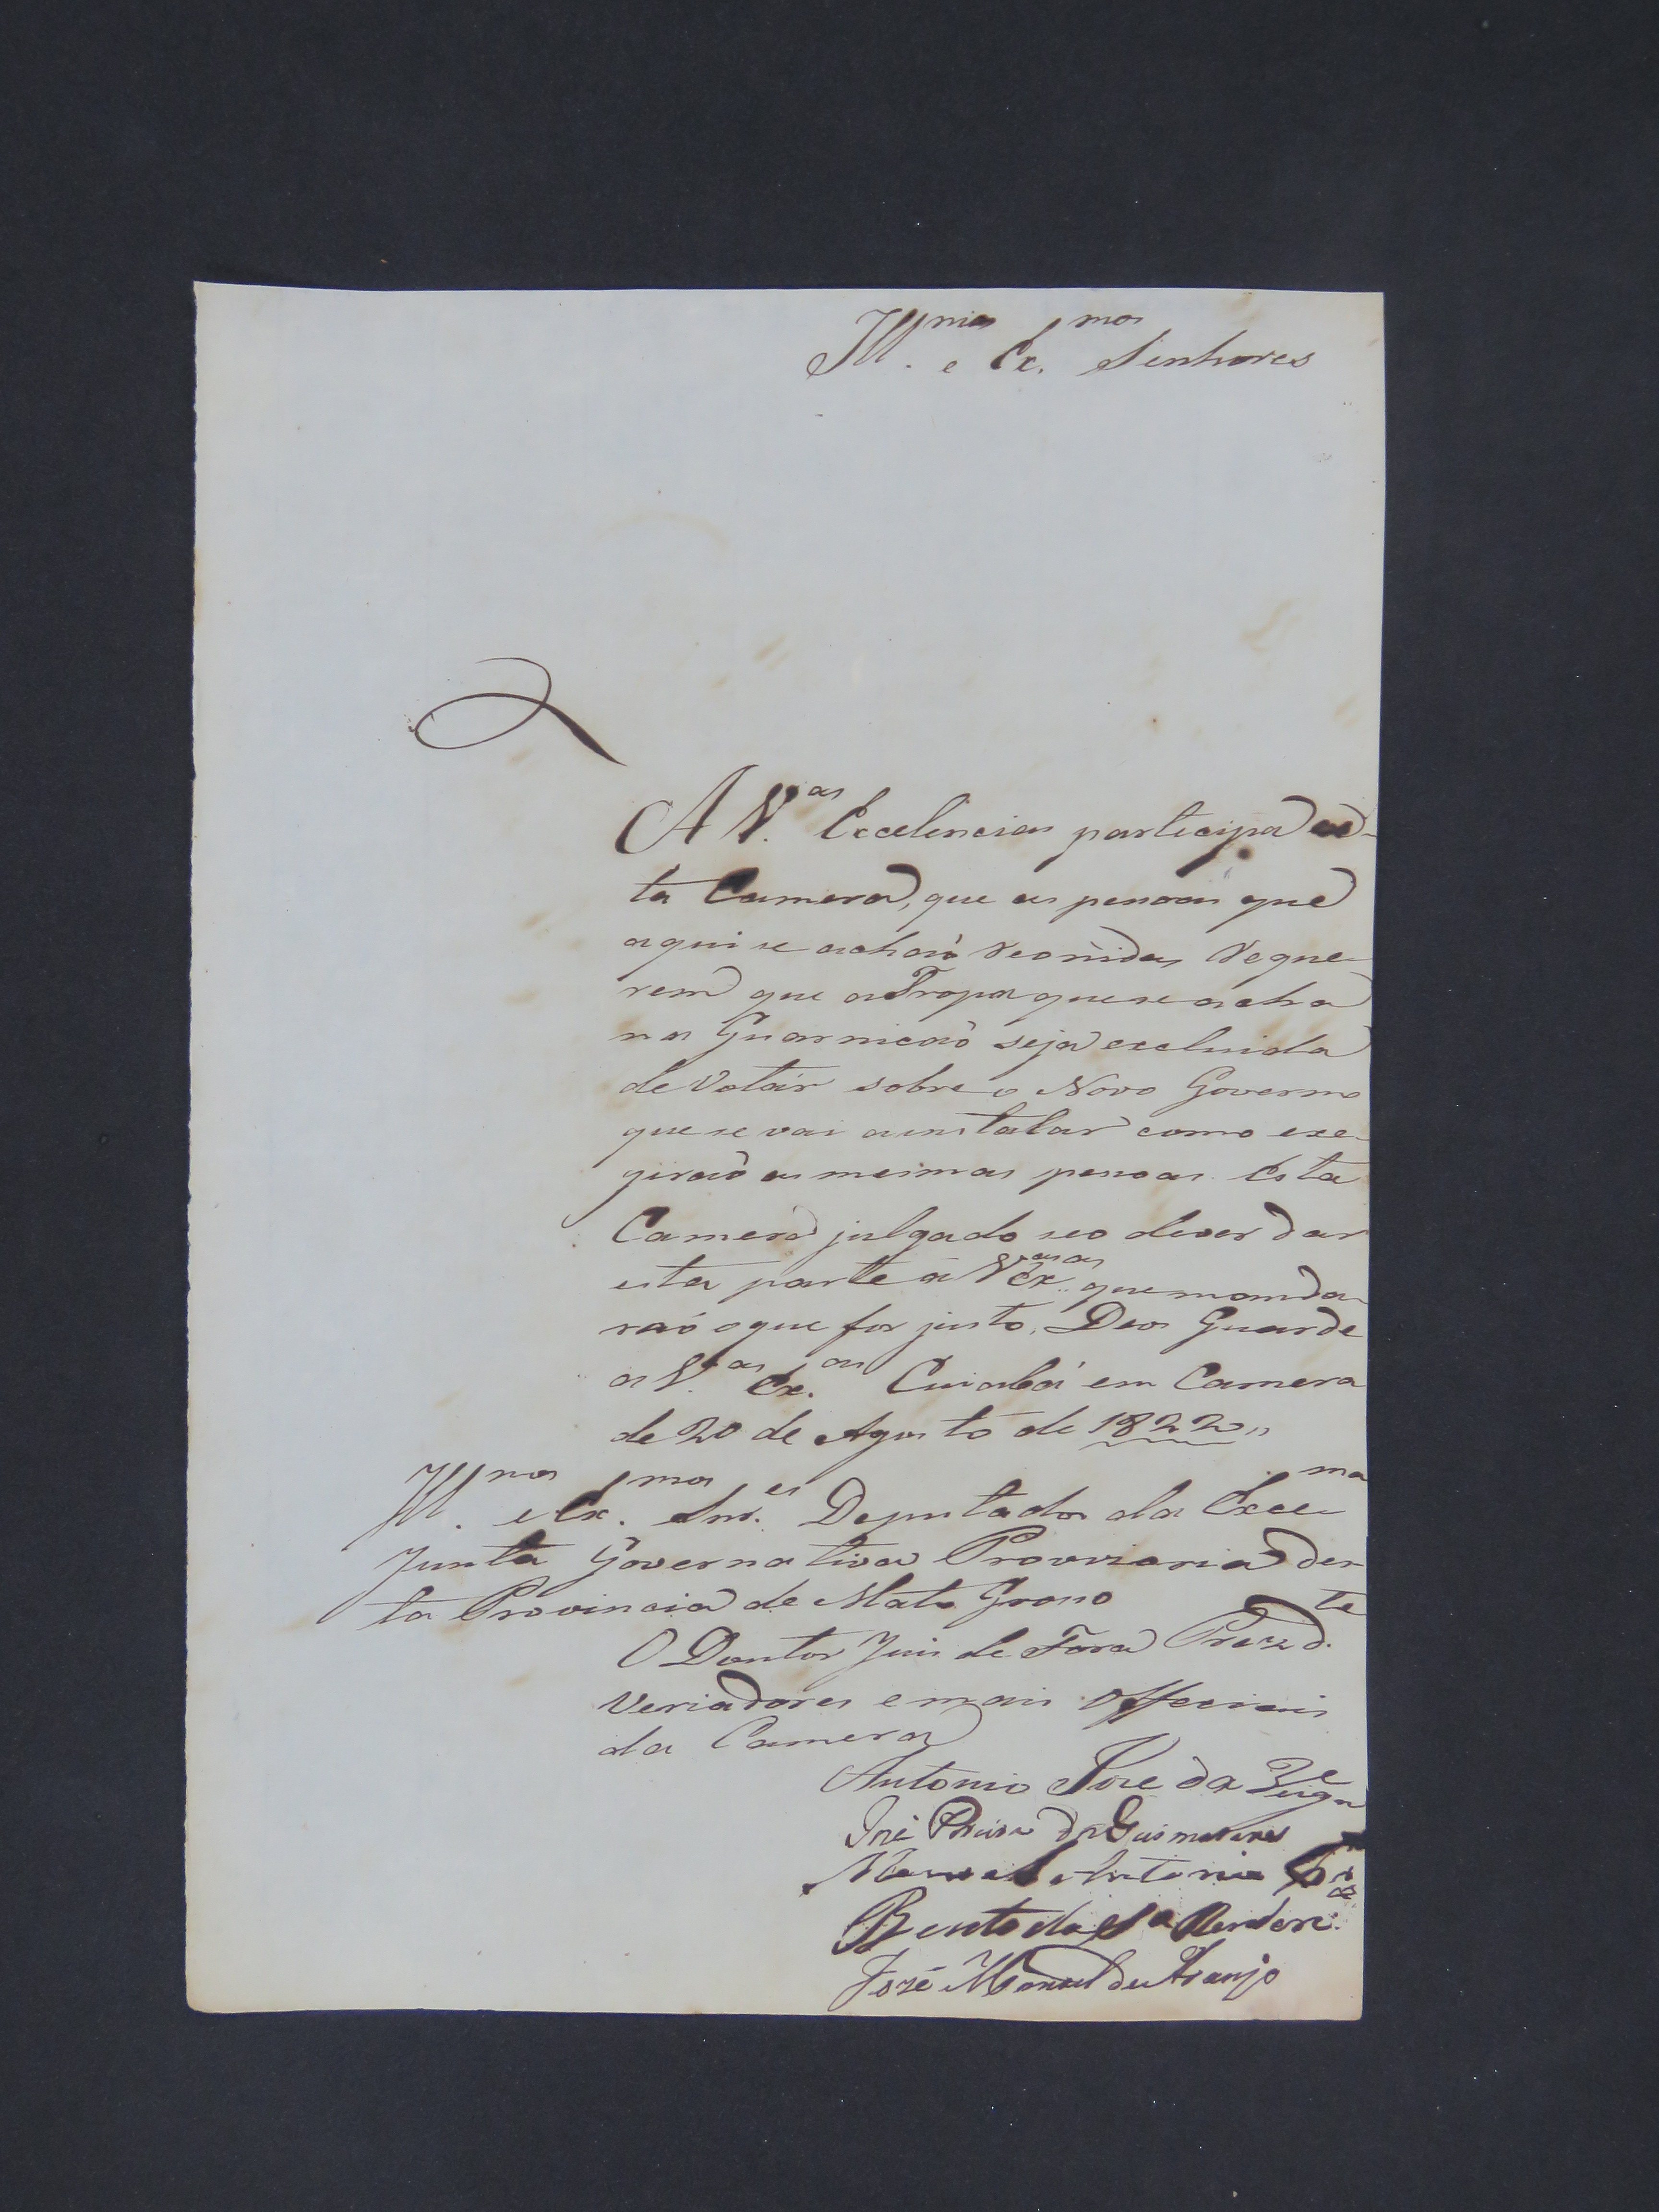 Ill.mos e Ex.mos Senhores
A V.as Excelencias participa es-
ta Camera, que as pesoas que
aqui se achaõ reonidas reque-
rem que a Tropa que se acha
na Guarnicaõ seja excluida
de Votar sobre o Novo Governo
que se vai a instalar como exe-
giraõ as mesmas pesoas. Esta
Camera julgado seo dever dar
esta parte a V.as Ex.as que manda-
raó o que for justo. Deos Guarde
a V.as Ex.as Cuiabá em Camera
de 20 de Agosto de 1822,,
Ill.mos e Ex.mos Snr.es Deputados da Exce.ma
Junta Governativa Provizoria des-
ta Provincia de Mato Groso
O Doutor Juis de Fora Prezd.te
Veriadores e mais Officiais
da Camera
Antonio Joze da Veiga
José da Guimarães
Manoel Antonio
Bento da S.a
José Manoel de Araujo